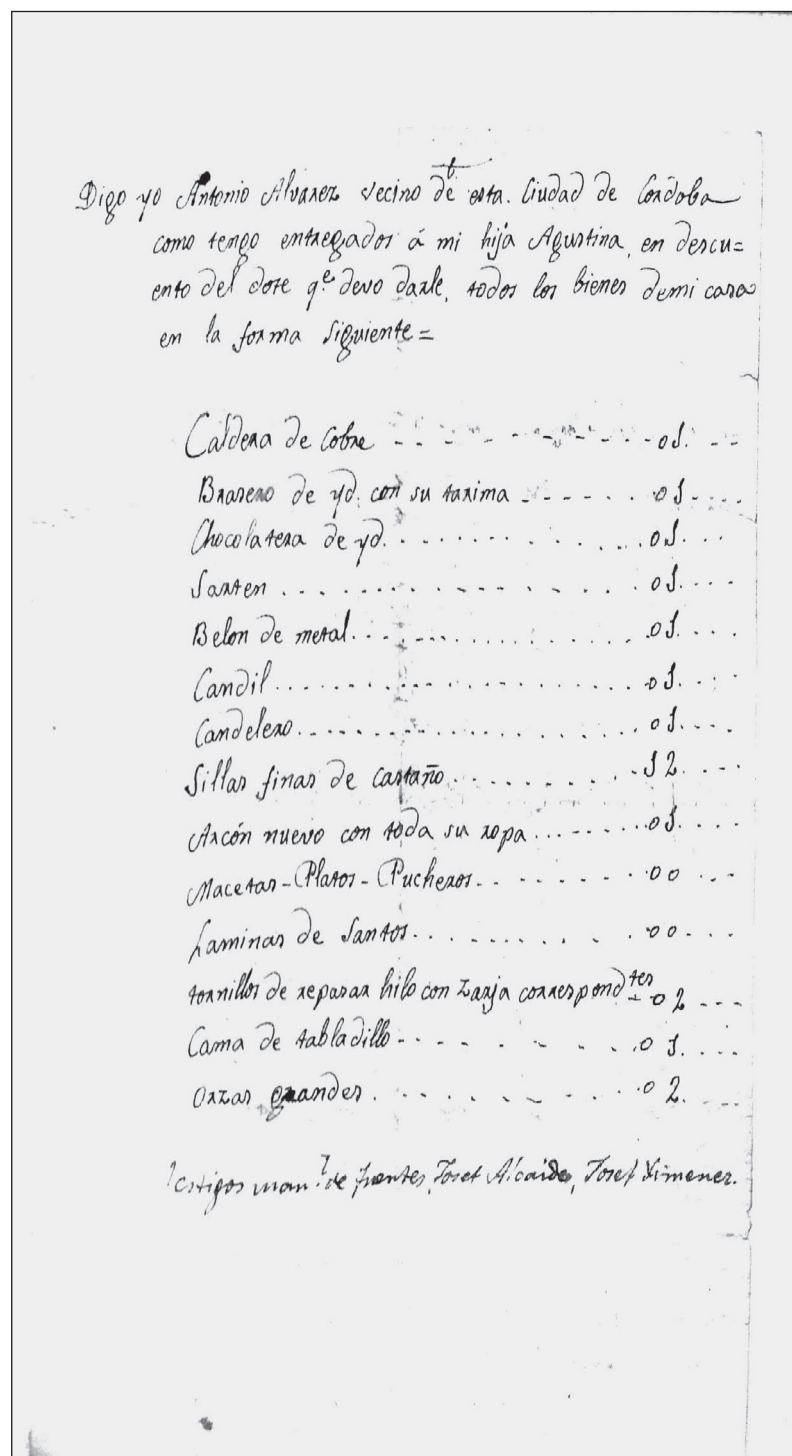 Digo yo Antonio Alvarez vecino de esta. Ciudad de Cordoba
como tengo entregados á mi hija Agustina, en descu=
ento del dote q.e devo darle, todos los bienes demi casa
en la forma siguiente=
Caldera de Cobre - - - - - - - - - 01. - -
Brasero de yd. con su tarima - - - - - . 01 - . . .
Chocolatera de yd. . . . . . . . . . . . . . 01. . . .
Sarten . . . . . . . . . . . . . . . . . 01. . . .
Belon de metal. . . . . . . . . . . . . . . 01. . . .
Candil. . . . . . . . . . . . . . . . . . . 01. . . .
Candelero. . . . . . . . . . . . . . . . . . 01. . . .
Sillas finas de castaño . . . . . . . . . . 12. . . .
Arcón nuevo con toda su ropa . . . . . . . . 01. . . .
Macetas - Platos - Pucheros. - - . . . . . . 00 . . .
Laminas de Santos. . . . . . . . . . . . 00. . . .
tornillos de reparar hilo con zarja correspondtes - 02 - - -
Cama de tabladillo - - - . - . - . . 01. . . .
Orzas grandes . . . . . . . . . . . 02. . . .
Testigos Man.l de Fuentes, Josef Alcaide, Josef Ximenez.